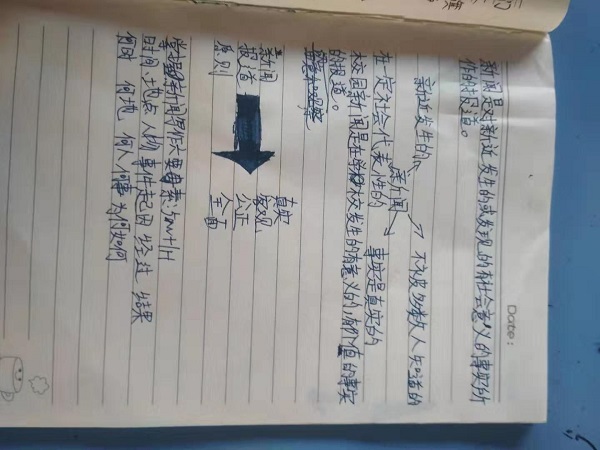 Date:
新闻是对新近发生的或发现的有社会意义的事实所
作的报道。
新近发生的 不被多数人知道的
新闻
在一定社会代表性的 事实是真实的
校园新闻是在学校发生的有意义的,有价值的事实
的报道。
新闻
报道
原则
真实
客观
公正
全面
掌握新闻写作六要素:5w+1H
时间、地点 人物 事件起因 经过 结果
何时 何地 何人 何事 为何 如何